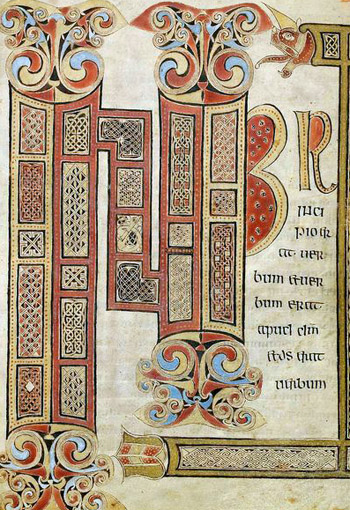 INP R
inci
pio er
at uer
bum &uer
bum erat
apud dm̄
&ds̄ erat
uerbum